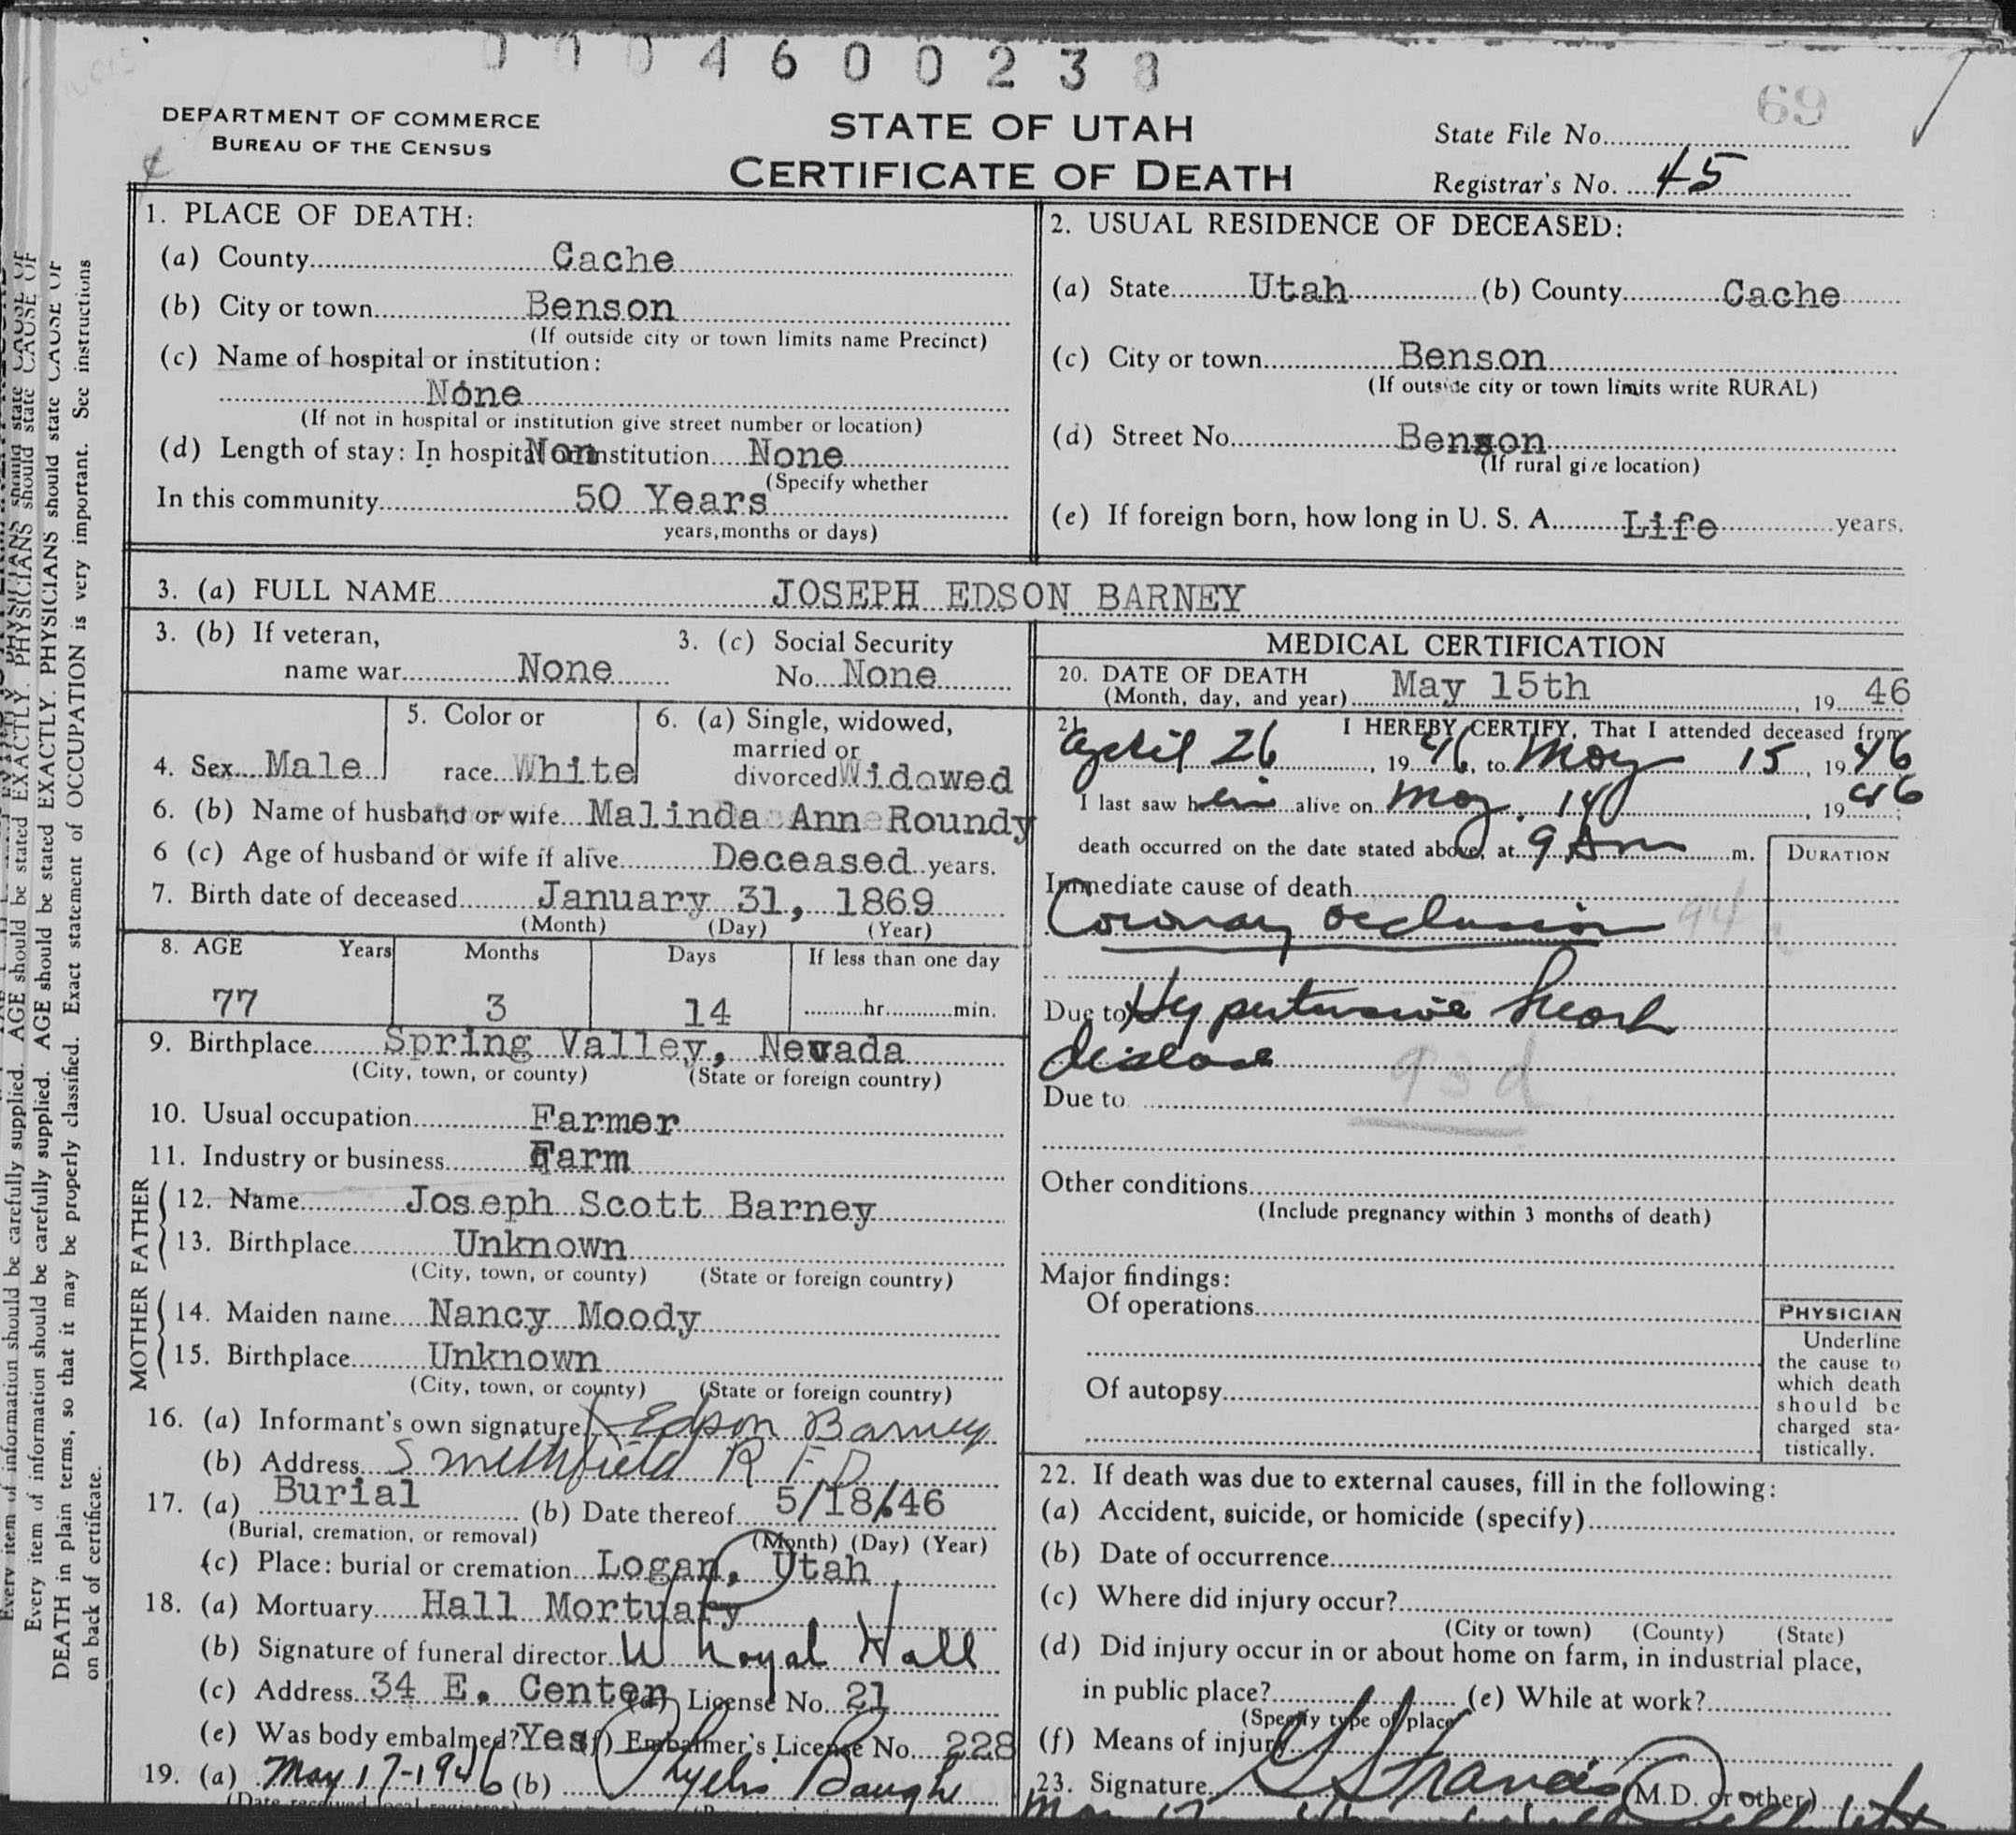 0 0 0 4 6 0 0 2 3 8
69
DEPARTMENT OF COMMERCE
BUREAU OF THE CENSUS
STATE OF UTAH
CERTIFICATE OF DEATH
State File No.
Registrar's No. 45
1. PLACE OF DEATH:
(a) County Cache
(b) City or town Benson
(If outside city or town limits name Precinct)
(c) Name of hospital or institution:
None
(If not in hospital or institution give street number or location)
(d) Length of stay: In hospital or institution None
(Specify whether
In this community 50 Years
years, months or days)
2. USUAL RESIDENCE OF DECEASED:
(a) State Utah (b) County Cache
(c) City or town Benson
(If outside city or town limits write RURAL)
(d) Street No. Benson
(If rural give location)
(e) If foreign born, how long in U. S. A. Life years.
3. (a) FULL NAME JOSEPH EDSON BARNEY
3. (b) If veteran,
name war None
3. (c) Social Security
No. None
4. Sex Male
5. Color or
race White
6. (a) Single, widowed,
married or
divorced Widowed
6. (b) Name of husband or wife Malinda Ann Roundy
6 (c) Age of husband or wife if alive Deceased years.
7. Birth date of deceased January 31, 1869
(Month) (Day) (Year)
8. AGE Years Months Days If less than one day
77 3 14 hr. min.
9. Birthplace Spring Valley, Nevada
(City, town, or county) (State or foreign country)
10. Usual occupation Farmer
11. Industry or business Farm
FATHER
12. Name Joseph Scott Barney
13. Birthplace Unknown
(City, town, or county) (State or foreign country)
MOTHER
14. Maiden name Nancy Moody
15. Birthplace Unknown
(City, town, or county) (State or foreign country)
16. (a) Informant's own signature Edson Barney
(b) Address Smithfield R F D
17. (a) Burial (b) Date thereof 5/18/46
(Burial, cremation, or removal) (Month) (Day) (Year)
(c) Place: burial or cremation Logan, Utah
18. (a) Mortuary Hall Mortuary
(b) Signature of funeral director W Loyal Hall
(c) Address 34 E. Center (d) License No. 21
(e) Was body embalmed? Yes (f) Embalmer's License No. 228
19. (a) May 17-1946 (b) Phyllis Baugh
MEDICAL CERTIFICATION
20. DATE OF DEATH
(Month, day, and year) May 15th, 19 46
21. I HEREBY CERTIFY, That I attended deceased from
April 26, 19 46, to May 15, 19 46
I last saw him alive on May 14, 19 46;
death occurred on the date stated above, at 9 Am m.
DURATION
Immediate cause of death
Coronary occlusion 94
Due to Hypertensive heart
disease
93d
Due to
Other conditions
(Include pregnancy within 3 months of death)
Major findings:
Of operations
Of autopsy
PHYSICIAN
Underline
the cause to
which death
should be
charged sta-
tistically.
22. If death was due to external causes, fill in the following:
(a) Accident, suicide, or homicide (specify)
(b) Date of occurrence
(c) Where did injury occur?
(City or town) (County) (State)
(d) Did injury occur in or about home on farm, in industrial place,
in public place? (e) While at work?
(Specify type of place)
(f) Means of injury
23. Signature Francis (M.D. or other)
Every item of information should be carefully supplied. AGE should be stated EXACTLY. PHYSICIANS should state CAUSE OF
DEATH in plain terms, so that it may be properly classified. Exact statement of OCCUPATION is very important. See instructions
on back of certificate.